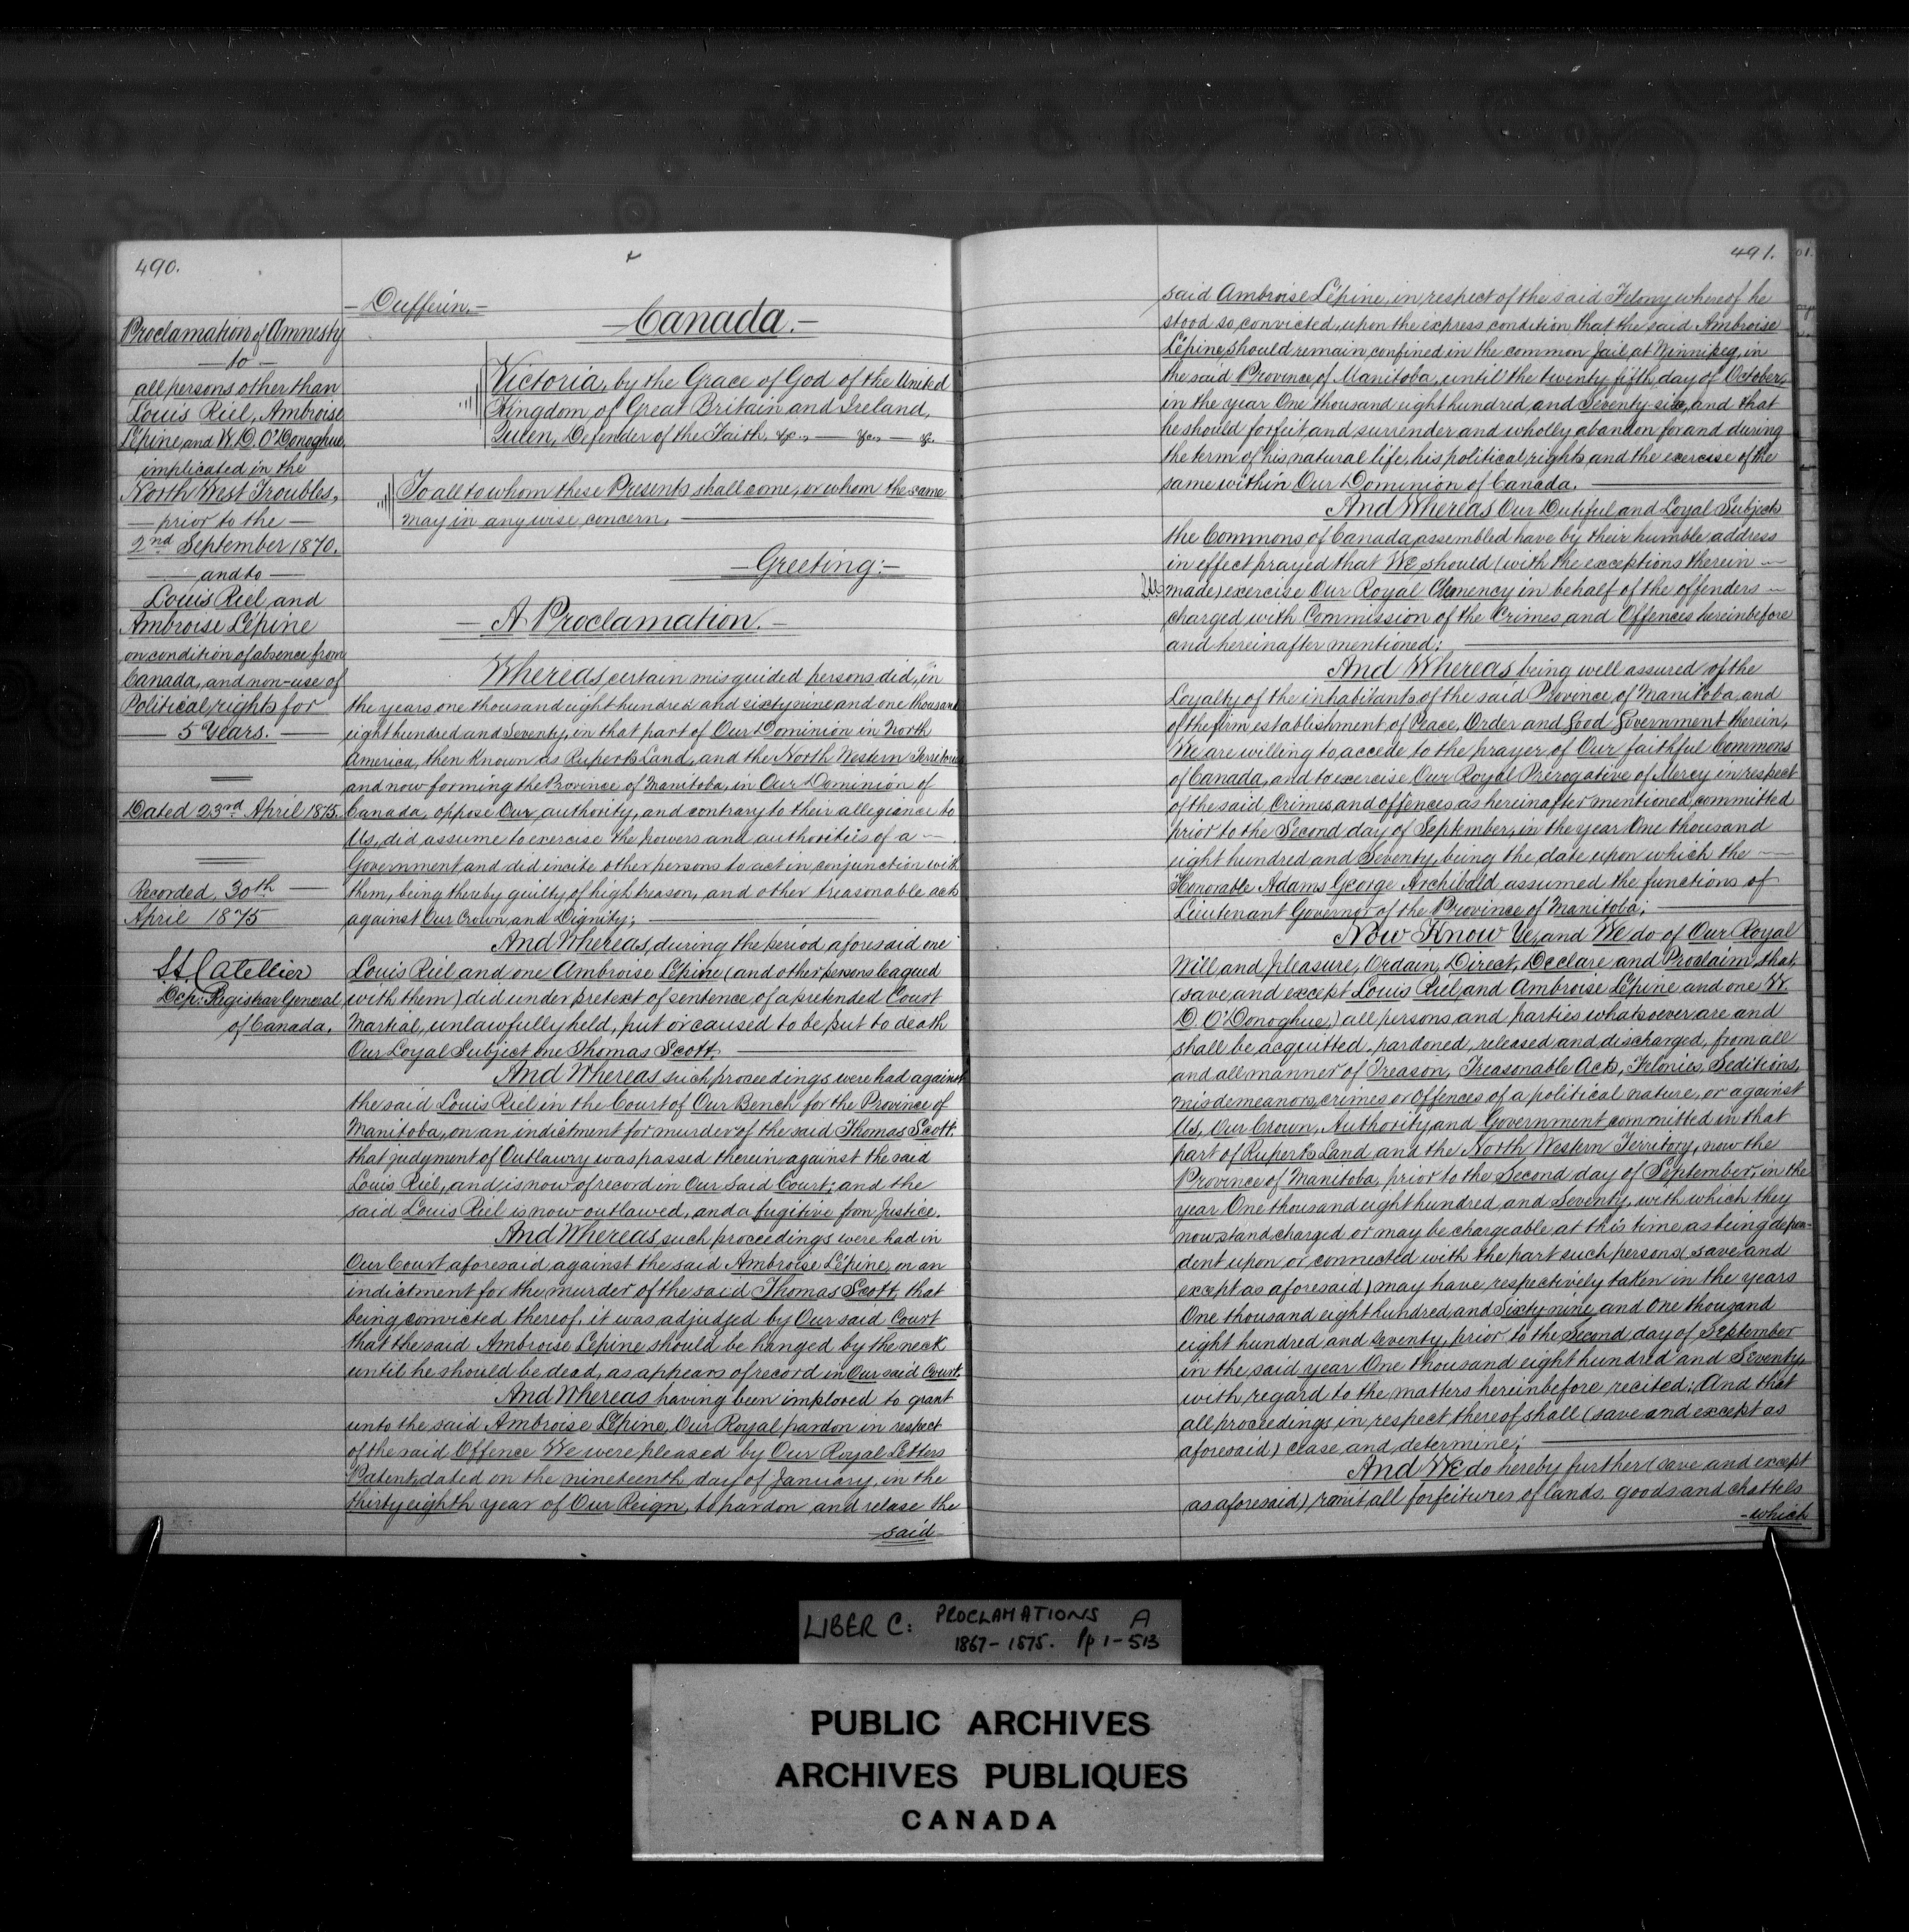 490.
Proclamation of Amnesty
— to —
all persons other than
Louis Riel, Ambroise
Lépine and W. O. O'Donoghue,
implicated in the
North West Troubles,
— prior to the —
2nd September 1870.
— and to —
Louis Riel and
Ambroise Lépine
on condition of absence from
Canada, and non-use of
Political rights for
— 5 Years. —
Dated 23rd April 1875.
Recorded, 30th —
April 1875
Dep: Registrar General
of Canada.
— Dufferin. —
— Canada. —
Victoria, by the Grace of God of the United
Kingdom of Great Britain and Ireland,
Queen, Defender of the Faith, &c., — &c., — &c.
To all to whom these Presents shall come, or whom the same
may in anywise concern, —
— Greeting: —
— A Proclamation. —
Whereas, certain misguided persons, did, in
the years one thousand eight hundred and sixty nine and one thousand
eight hundred and Seventy, in that part of Our Dominion in North
America, then known as Ruperts Land, and the North Western Territories
and now forming the Province of Manitoba, in Our Dominion of
Canada, oppose Our authority, and contrary to their allegiance to
Us, did assume to exercise the powers and authorities of a —
Government and did incite other persons to act in conjunction with
them, being thereby guilty of high treason, and other treasonable acts
against Our Crown and Dignity; —
And Whereas, during the period aforesaid one
Louis Riel and one Ambroise Lépine (and other persons leagued
with them) did under pretext of sentence of a pretended Court
Martial, unlawfully held, put or caused to be put to death
Our Loyal Subject one Thomas Scott. —
And Whereas such proceedings were had against
the said Louis Riel in the Court of Our Bench for the Province of
Manitoba, on an indictment for murder of the said Thomas Scott.
that judgment of Outlawry was passed therein against the said
Louis Riel, and is now of record in Our said Court; and the
said Louis Riel is now outlawed, and a fugitive from Justice.
And Whereas such proceedings were had in
Our Court aforesaid against the said Ambroise Lépine, on an
indictment for the murder of the said Thomas Scott, that
being convicted thereof, it was adjudged by Our said Court
that the said Ambroise Lépine should be hanged by the neck
until he should be dead, as appears of record in Our said Court.
And Whereas having been implored to grant
unto the said Ambroise Lépine, Our Royal pardon in respect
of the said Offence We were pleased by Our Royal Letters
Patent, dated on the nineteenth day of January, in the
thirty eighth year of Our Reign, to pardon and relase the
said
491.
said Ambroise Lépine, in respect of the said Felony whereof he
stood so convicted, upon the express condition that the said Ambroise
Lépine, should remain confined in the common Jail at Winnipeg, in
the said Province of Manitoba, until the twenty fifth day of October,
in the year One thousand eight hundred and Seventy-six, and that
he should forfeit, and surrender and wholly abandon for and during
the term of his natural life, his political rights and the exercise of the
same within Our Dominion of Canada. —
And Whereas Our Dutiful and Loyal Subjects
the Commons of Canada assembled have by their humble address
in effect prayed that We should (with the exceptions therein —
made) exercise Our Royal Clemency in behalf of the offenders —
charged with Commission of the Crimes and Offences hereinbefore
and hereinafter mentioned; —
And Whereas being well assured of the
Loyalty of the inhabitants of the said Province of Manitoba and
of the firm establishment of Peace, Order and Good Government therein,
We are willing to accede to the prayer of Our faithful Commons
of Canada, and to exercise Our Royal Prerogative of Mercy in respect
of the said Crimes and offences as hereinafter mentioned, committed
prior to the Second day of September, in the year One thousand
eight hundred and Seventy, being the date upon which the —
Honorable Adams George Archibald assumed the functions of
Lieutenant Governor of the Province of Manitoba; —
Now Know Ye, and We do of Our Royal
Will and pleasure, Ordain, Direct, Declare and Proclaim, that,
(save and except Louis Riel, and Ambroise Lépine and one W.
O. O'Donoghue,) all persons and parties whatsoever are and
shall be acquitted, pardoned, released and discharged, from all
and all manner of Treason, Treasonable Acts, Felonies, Seditions,
misdemeanors, crimes or Offences of a political nature, or against
Us, Our Crown, Authority and Government committed in that
part of Rupert's Land and the North Western Territory, now the
Province of Manitoba, prior to the Second day of September, in the
year One thousand eight hundred, and Seventy, with which they
now stand charged or may be chargeable at this time as being depen-
dent upon or connected with the part such persons (save and
except as aforesaid) may have respectively taken in the years
One thousand eight hundred and Sixty-nine and One thousand
eight hundred and seventy, prior to the second day of September
in the said year One thousand eight hundred and Seventy
with regard to the matters hereinbefore recited; And that
all proceedings in respect thereof shall (save and except as
aforesaid) cease and determine; —
And We do hereby further (save and except
as aforesaid) remit all forfeitures of lands, goods and chattels
- which
LIBER C: PROCLAMATIONS A
1867-1875. Pp 1-513
PUBLIC ARCHIVES
ARCHIVES PUBLIQUES
CANADA